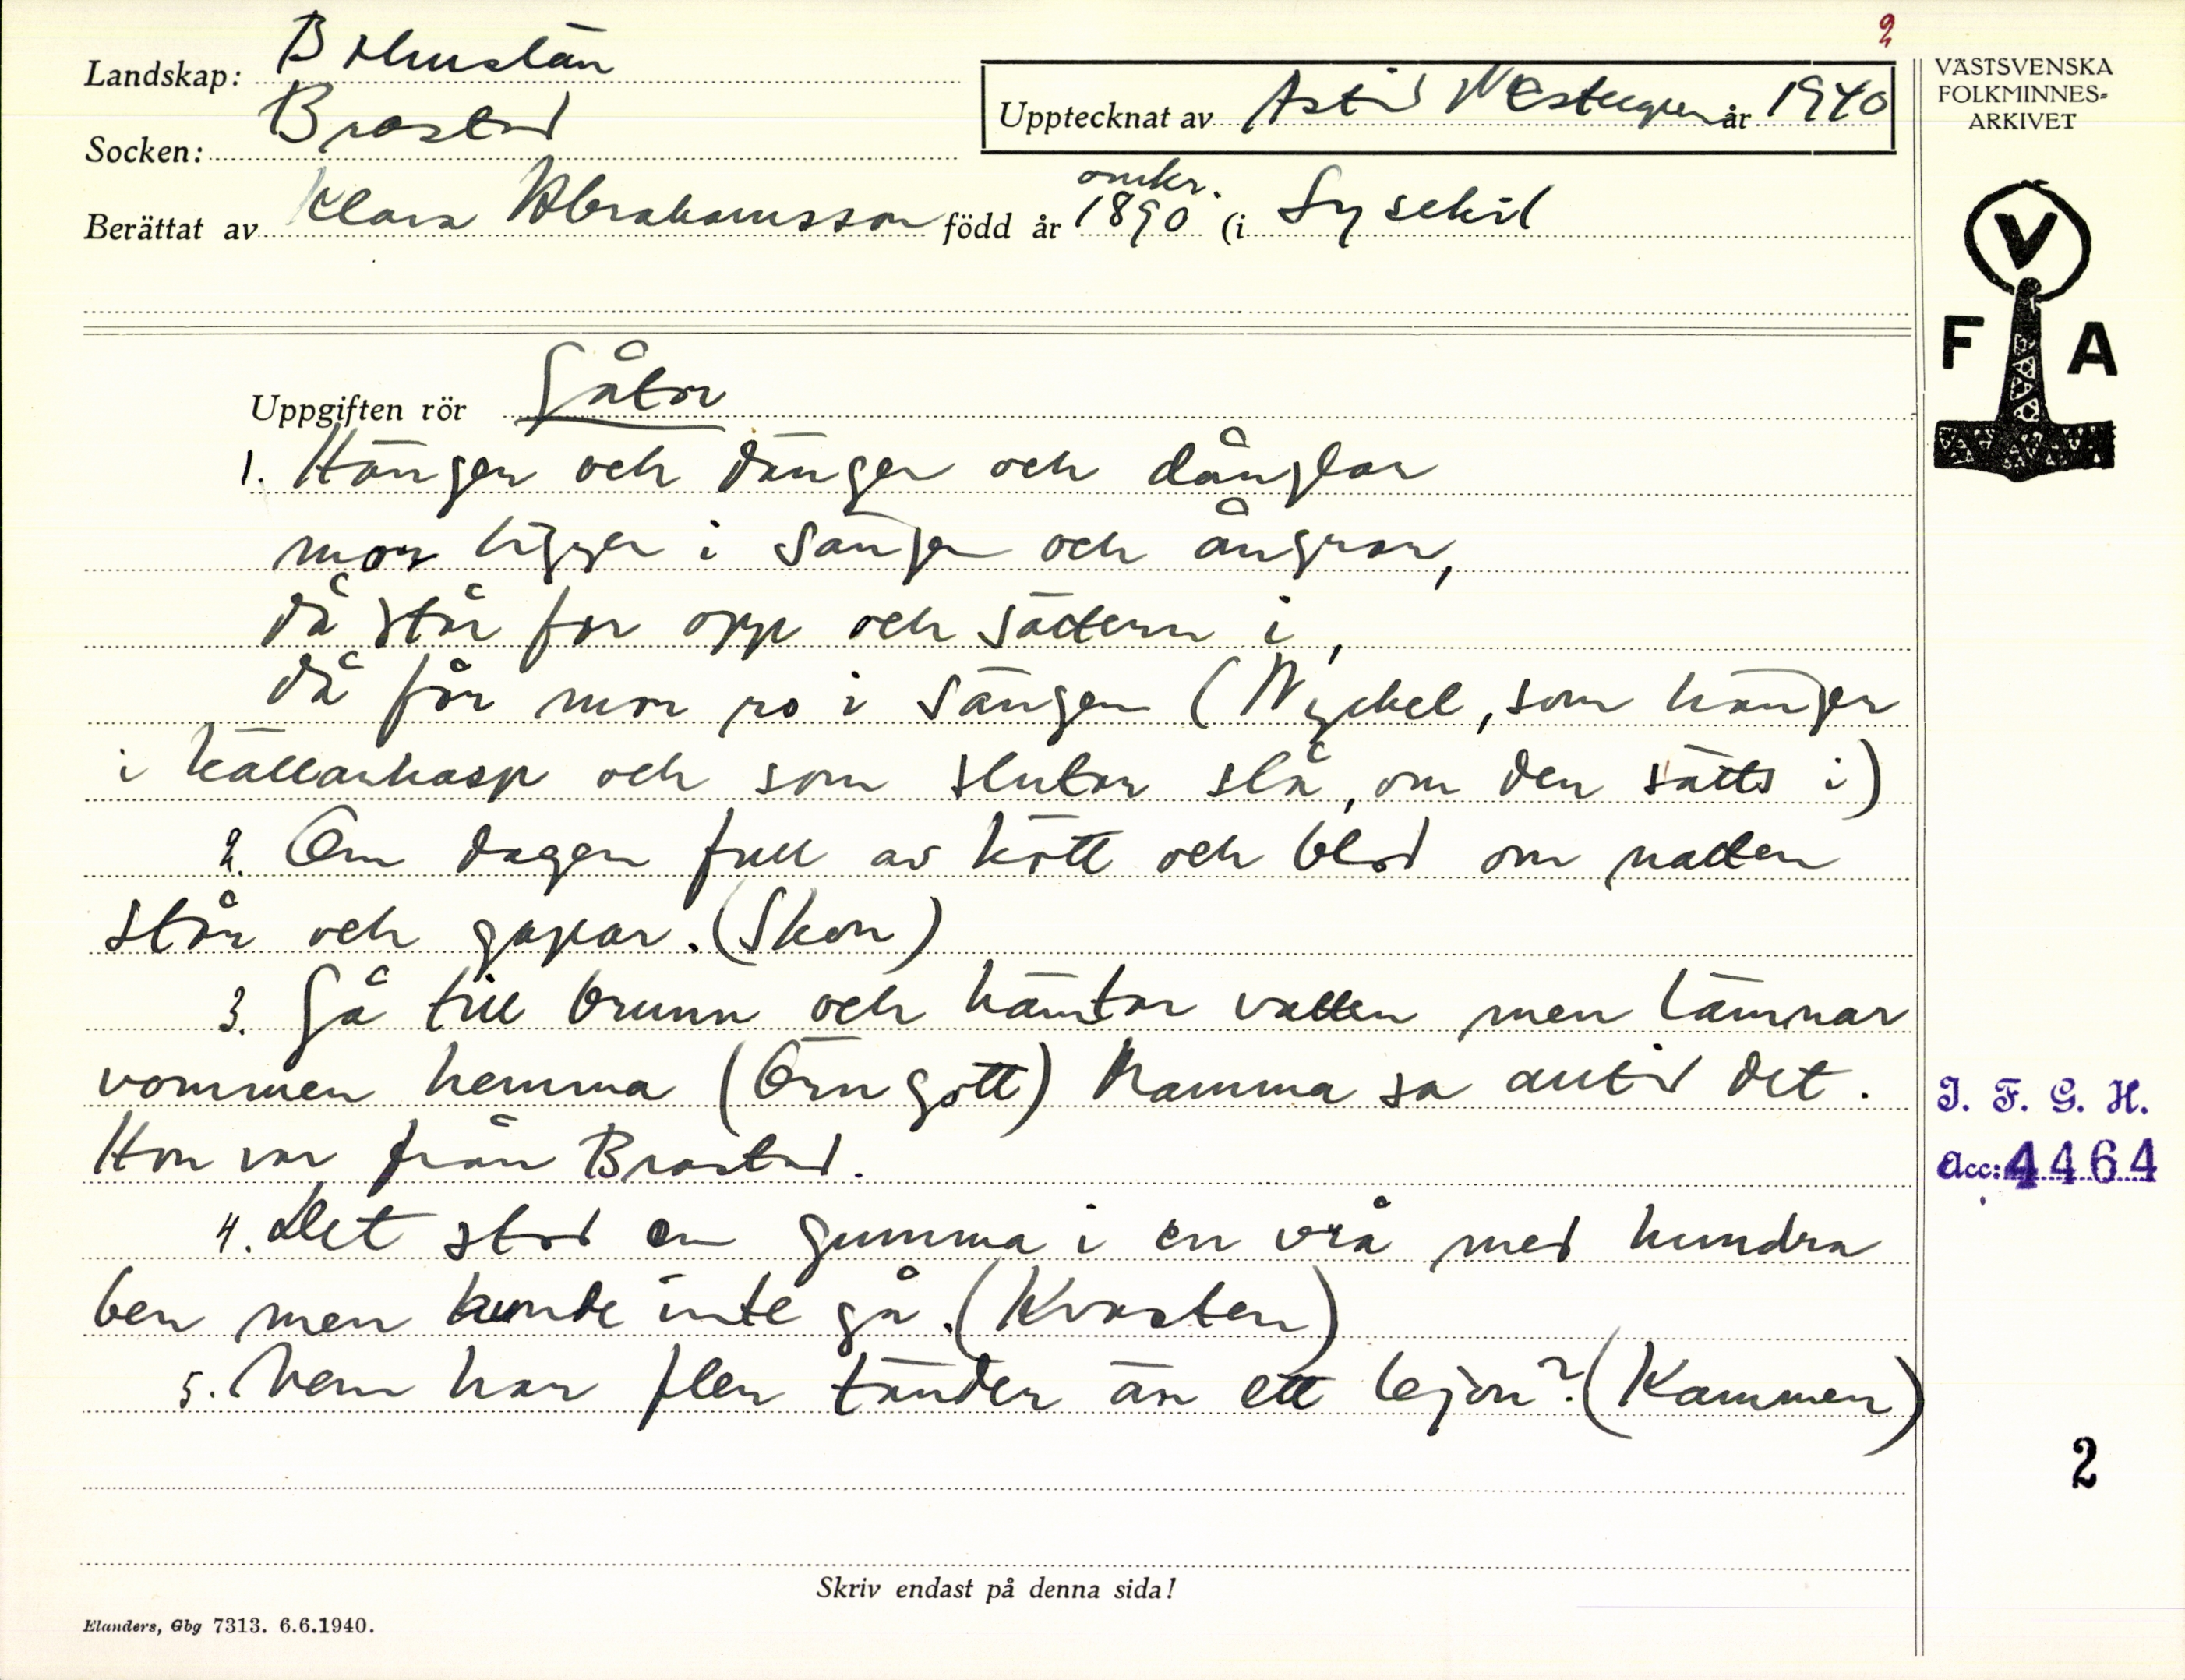 2
Landskap: Bohuslän
Socken: Brastad
Upptecknat av Astrid Westergren år 1940
Berättat av Klara Abrahamsson född år omkr. 1890 (i Lysekil
VÄSTSVENSKA
FOLKMINNES-
ARKIVET
V
F A
Uppgiften rör Gåtor
1. Hänger och dänger och dånglar
mor ligger i sängen och ångrar,
då står far opp och sättern i,
då får mor ro i sängen (Nyckel, som hänger
i källarhasp och som slutar slå, om den sätts i)
2. Om dagen full av kött och blod om natten
står och gapar. (Skon)
3. Gå till brunn och hämtar vatten men lämnar
vommen hemma (Örngott) Mamma sa alltid det.
Hon var från Brastad.
4. Det stod en gumma i en vrå med hundra
ben men kunde inte gå. (Kvasten)
5. Vem har fler tänder än ett lejon? (Kammen)
I. F. G. H.
Acc: 4464
2
Skriv endast på denna sida!
Elanders, Gbg 7313. 6.6.1940.